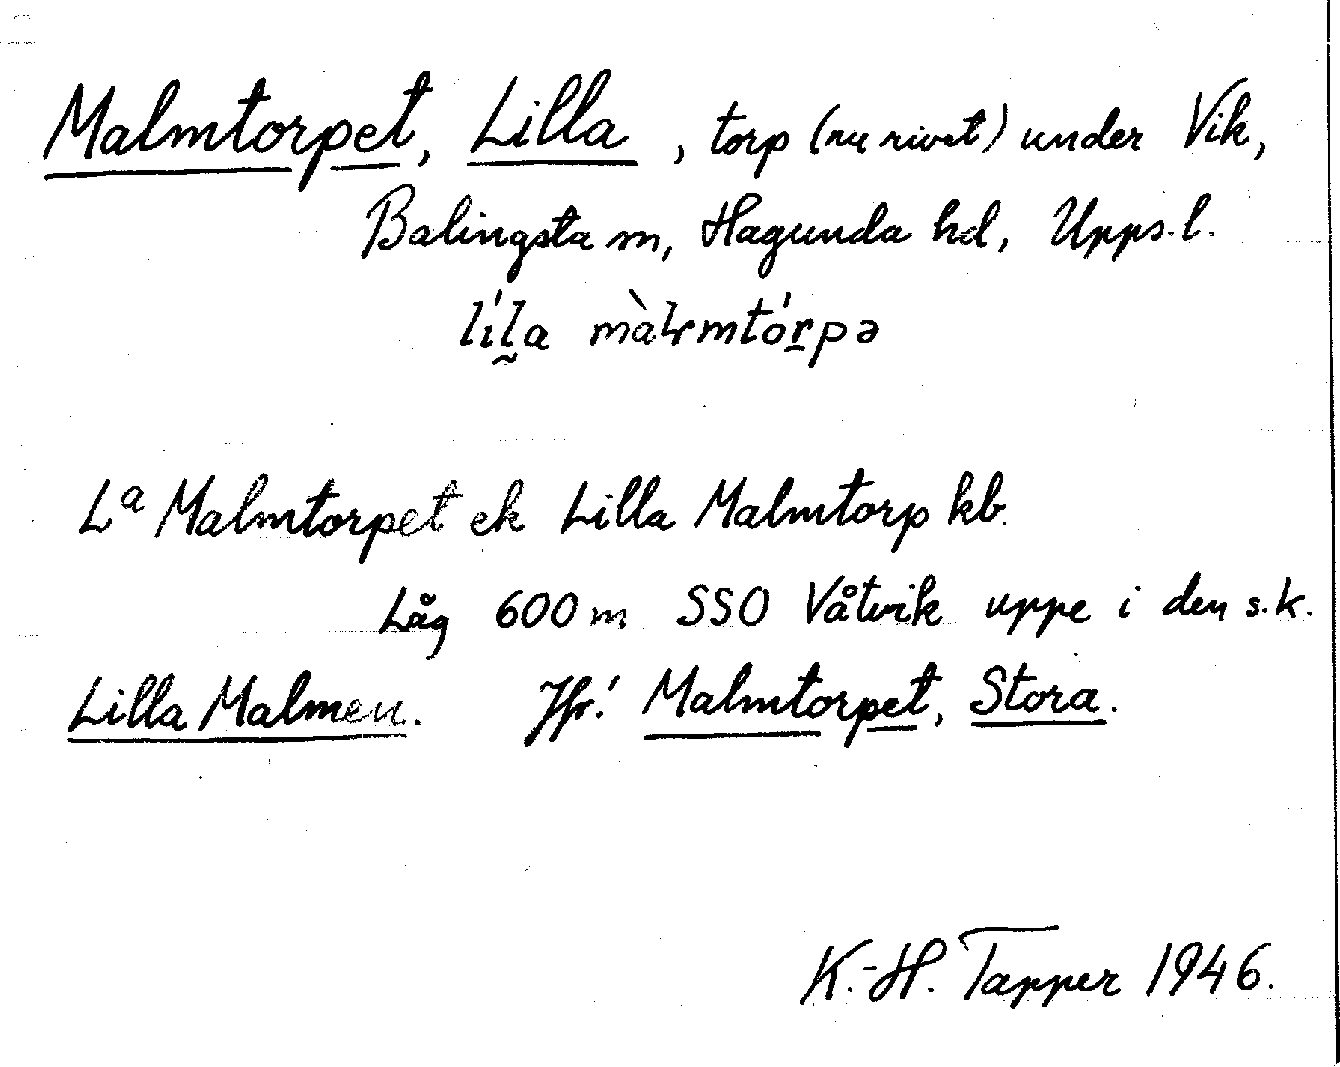 Malmtorpet, Lilla, torp (nu rivet) under Vik,
Balingsta sn, Hagunda hd, Uppl.
lı́l̰a màɫmtórpə
La Malmtorpet ek Lilla Malmtorp kb.
Låg 600 m SSO Våtvik uppe i den s.k.
Lilla Malmen. Jfr! Malmtorpet, Stora.
K.-H. Tapper 1946.